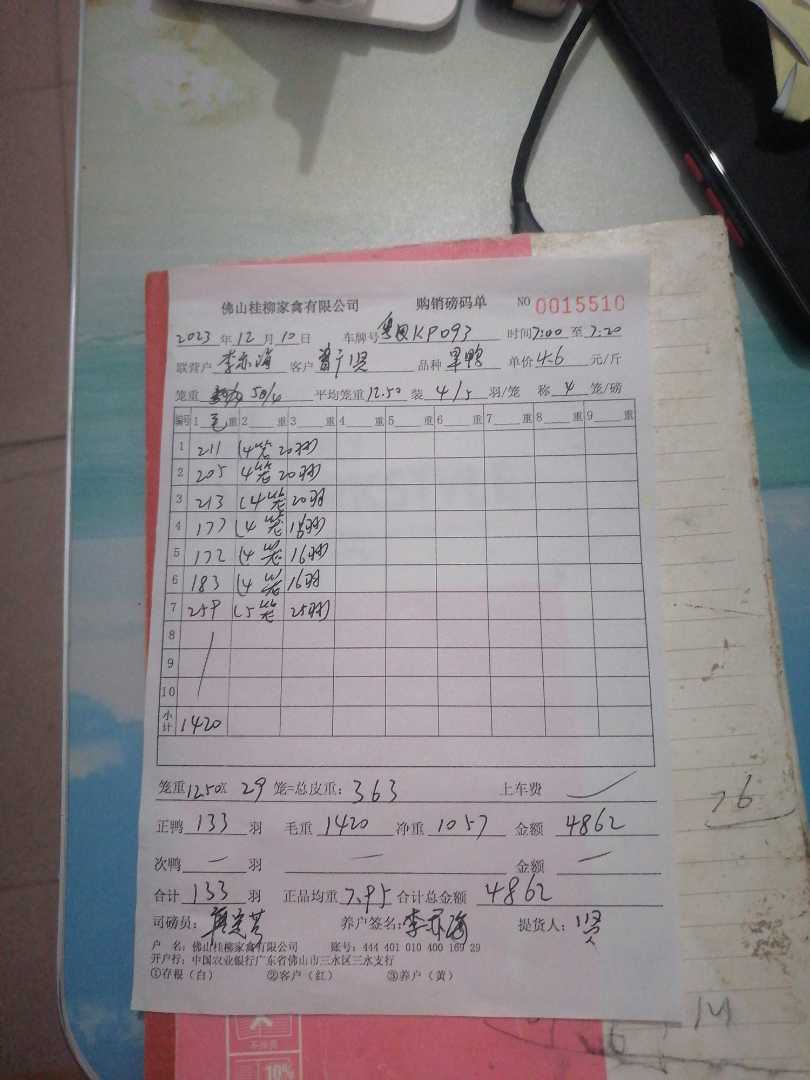 佛山桂柳家禽有限公司 购销磅码单 NO 0015510
2023年12月10日 车牌号 KP093 时间7:00至7:20
联营户 李亦海 客户 品种 单价4.6元/斤
笼重 50/4 平均笼重12.50 装4/5羽/笼 称4笼/磅
编号 1毛重 2重 3重 4重 5重 6重 7重 8重 9重
1 211 (4笼 20羽)
2 205 4笼 20羽)
3 213 (4笼 20羽
4 177 (4笼 16羽)
5 172 (4笼 16羽)
6 183 (4笼 16羽
7 259 (5笼 25羽)
8
9
10
小计 1420
笼重1250X 29笼=总皮重:363 上车费
正鸭133羽 毛重1420 净重1057 金额4862
次鸭一羽 一 金额一
合计133羽 正品均重7.95 合计总金额4862
司磅员: 养户签名:李亦海 提货人:贤
户 名:佛山桂柳家禽有限公司 账号:444 401 010 400 169 29
开户行:中国农业银行广东省佛山市三水区三水支行
①存根(白) ②客户(红) ③养户(黄)
76
10%